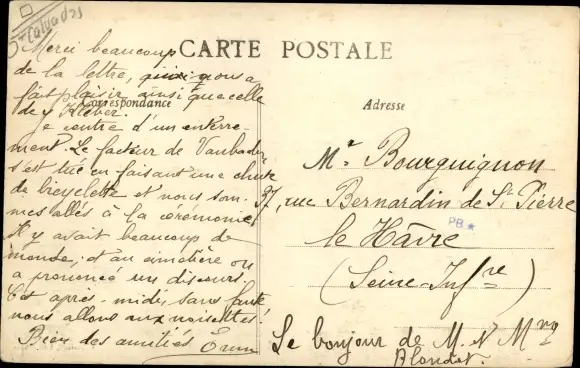 Calvados
CARTE POSTALE
Correspondance
Adresse
Merci beaucoup
de la lettre, qui nous a
fait plaisir ainsi que celle
de Kléber.
Je rentre d'un enterre-
ment. Le facteur de Vaubadon
s'est tué en faisant une chute
de bicyclette et nous som-
mes allés à la cérémonie.
Il y avait beaucoup de
monde, et au cimetière on
a prononcé un discours.
Cet après-midi, sans faute
nous allons aux noisettes!
Bien des amitiés
Mr Bourguignon
37, rue Bernardin de St Pierre
le Hâvre
(Seine-Infre)
PB
Le bonjour de M. et Mme
Blondet.